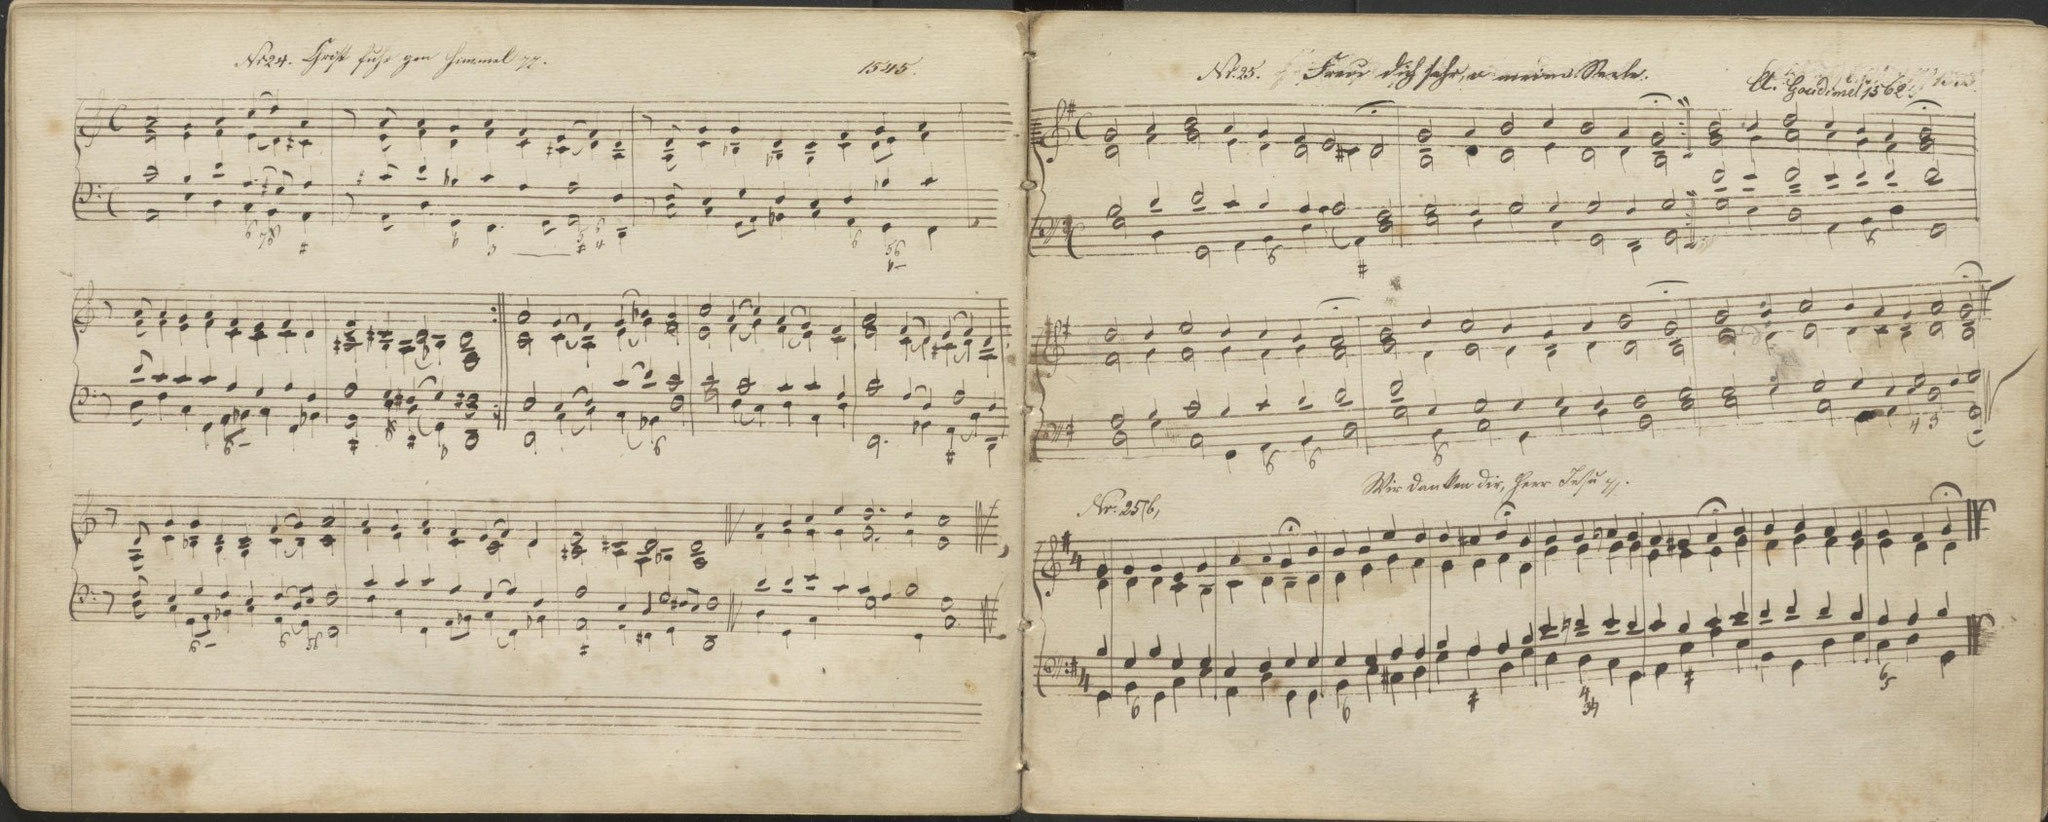 No 24. Christ fuhr gen Himmel pp. 1545.
Nr. 25. Freu dich sehr, o meine Seele. Cl. Goudimel 1562
Wir danken dir, Herr Jesu p.
Nr. 25b,